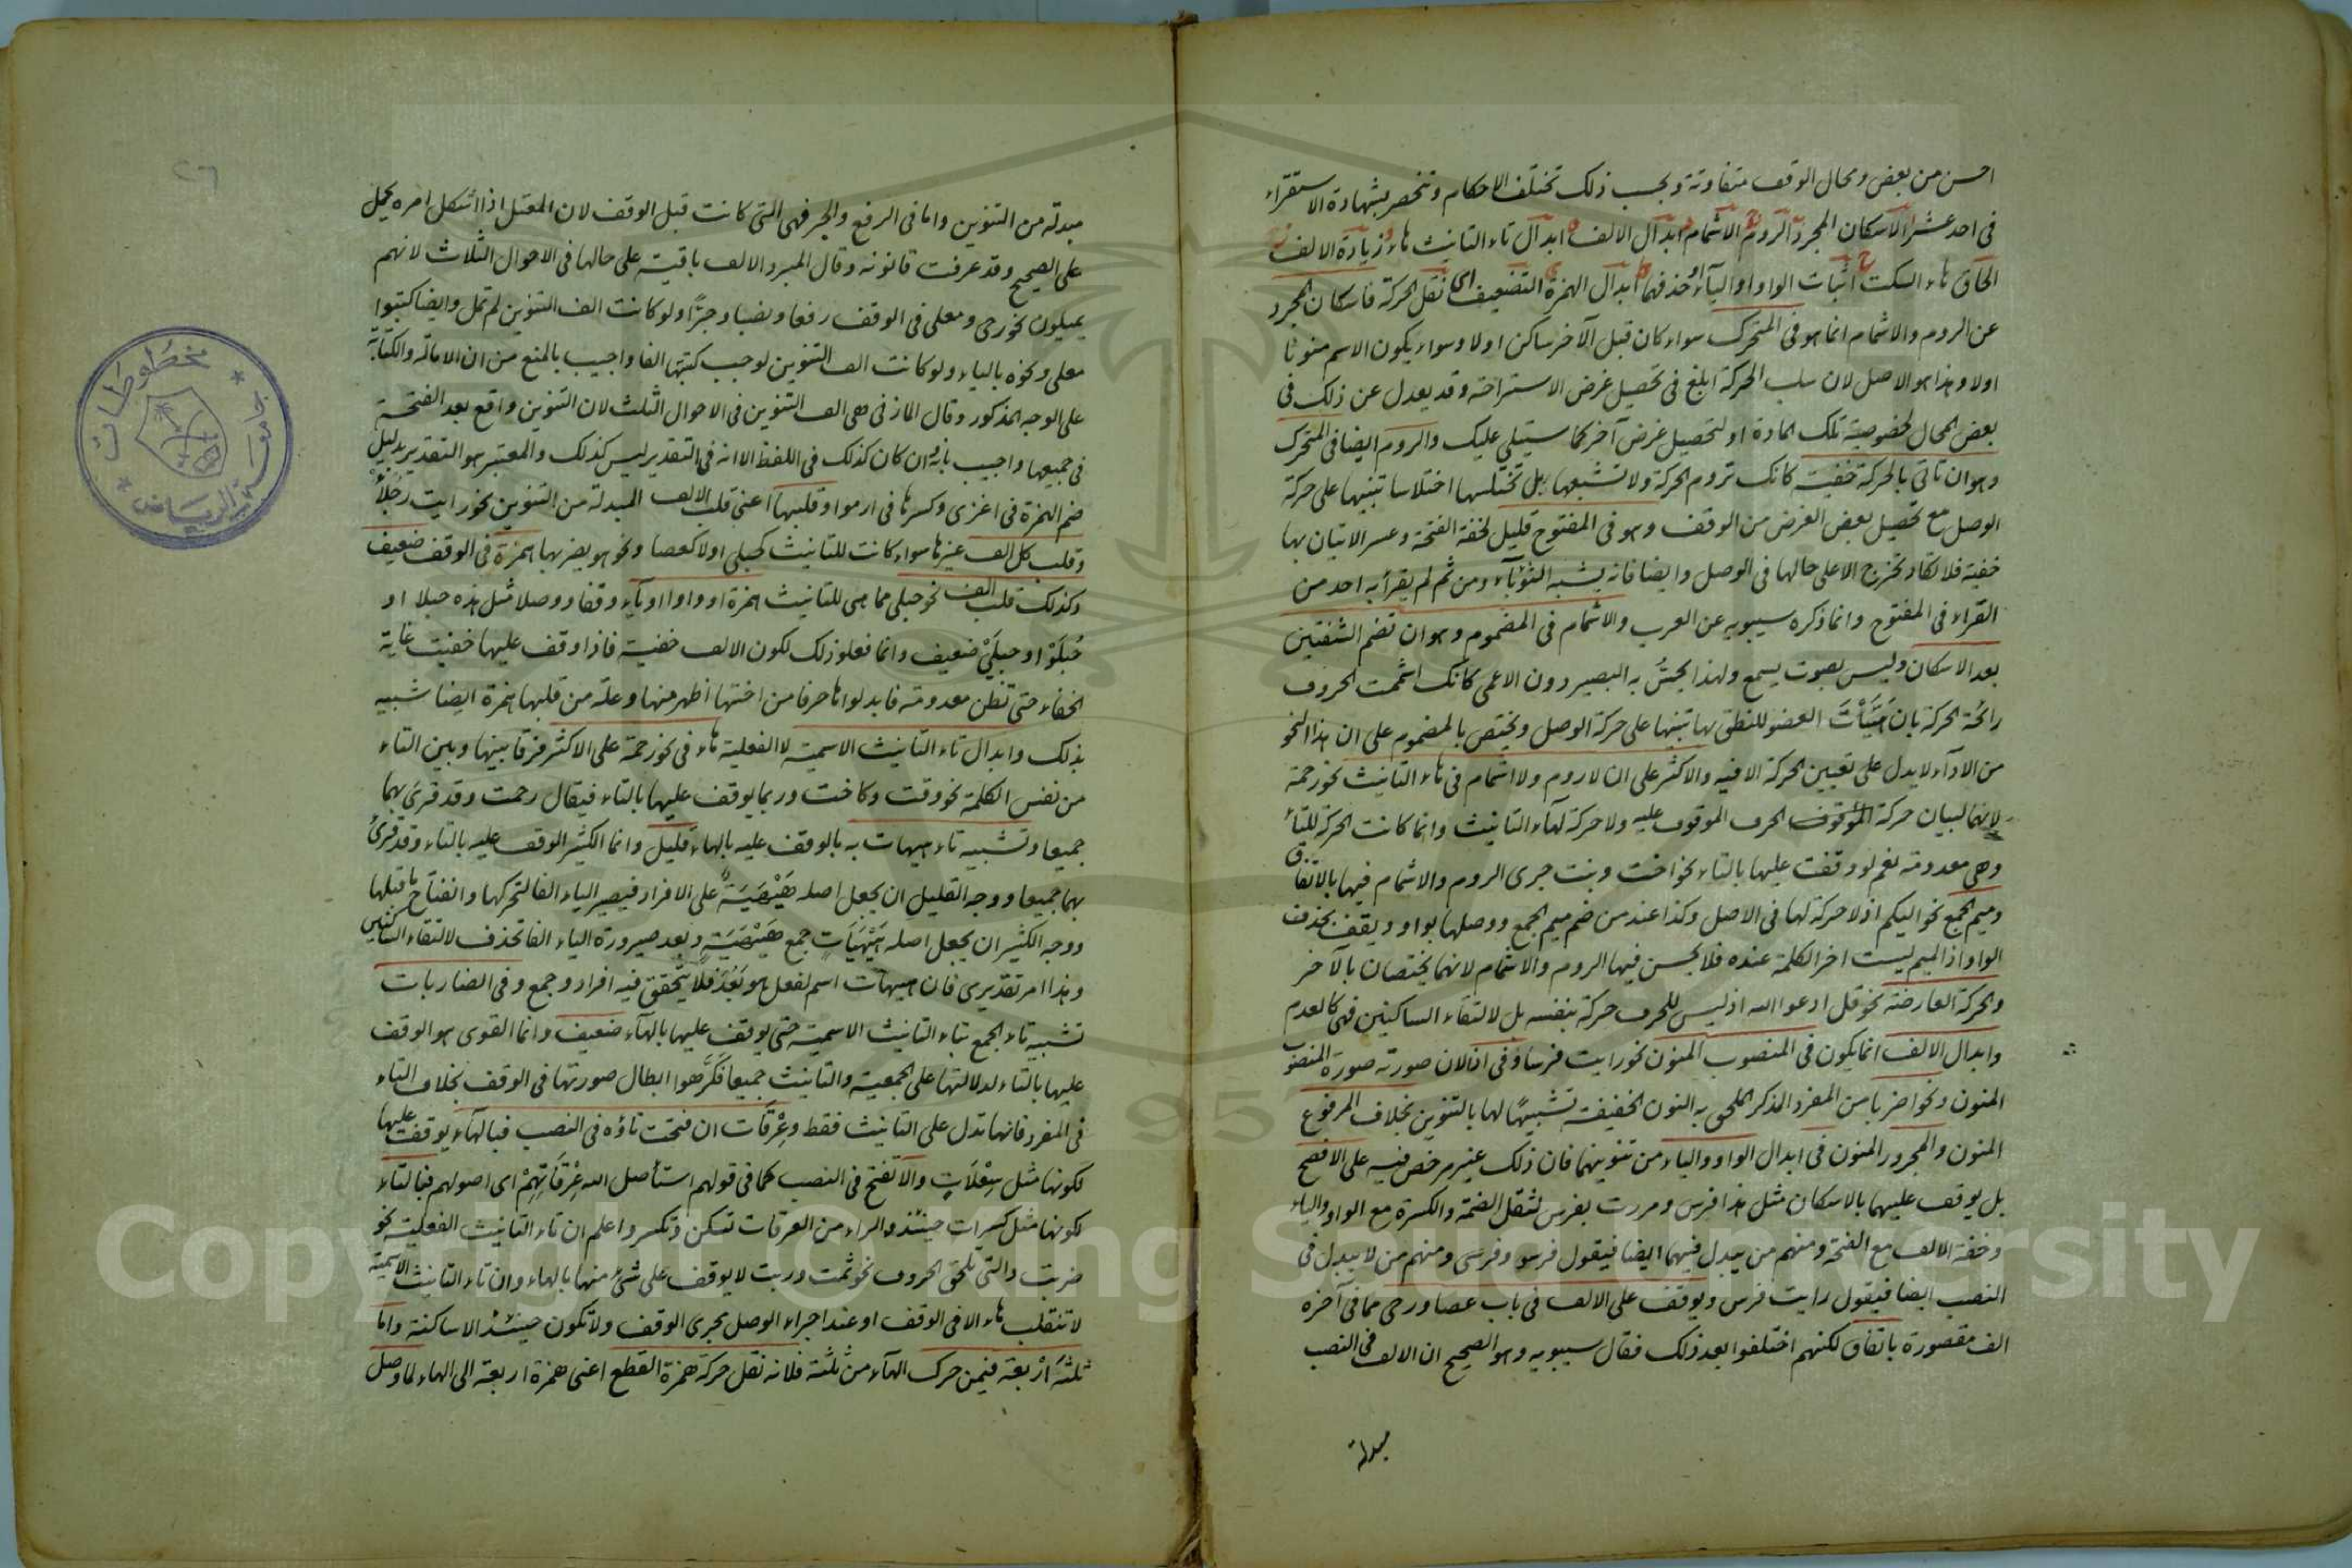 احسن من بعض ومحال الوقف متفاوتة وبحسب ذلك تختلف الاحكام وتنحصر بشهادة الاستقراء
فى احد عشر الاسكان المجرد الروم الاشمام ابدال الالف ابدال تاء التانيث هاء زيادة الالف
الحاق هاء السكت اثبات الواو او الياء او حذفهما ابدال الهمزة التضعيف نقل الحركة فاسكان المجرد
عن الروم والاشمام انما هو فى المتحرك سواء كان قبل الآخر ساكن اولا وسواء يكون الاسم منونا
اولا وهذا هو الاصل لان سلب الحركة ابلغ فى تحصيل غرض الاستراحة وقد يعدل عن ذلك فى
بعض المحال لخصوصية تلك المادة او لتحصيل غرض آخر كما سيتلى عليك والروم ايضا فى المتحرك
وهو ان تاتى بالحركة خفية كانك تروم الحركة ولا تشبعها بل تختلسها اختلاسا تنبيها على حركة
الوصل مع تحصيل بعض الغرض من الوقف وهو فى المفتوح قليل لخفة الفتحة وعسر الاتيان بها
خفية فلا تكاد تخرج الا على حالها فى الوصل وايضا فانه يشبه الثؤباء ومن ثم لم يقرأ به احد من
القراء فى المفتوح وانما ذكره سيبويه عن العرب والاشمام فى المضموم وهو ان تضم الشفتين
بعد الاسكان وليس بصوت يسمع ولهذا يحسُّ به البصير دون الاعمى كانك اشممت الحروف
رائحة الحركة بان هَيَّأْتَ العضو للنطق بها تنبيها على حركة الوصل ويختص بالمضموم على ان هذا النحو
من الاداء لا يدل على تعيين الحركة الا فيه والاكثر على ان لا روم ولا اشمام فى هاء التانيث نحو رحمة
لانهما لبيان حركة الموقوف الحرف الموقوف عليه ولا حركة لهاء التانيث وانما كانت الحركة للتاء
وهى معدومة نعم لو وقفت عليها بالتاء نحو اخت وبنت جرى الروم والاشمام فيها بالاتفاق
وميم الجمع نحو اليكم اذ لا حركة لها فى الاصل وكذا عند من ضم ميم الجمع ووصلها بواو ويقف بحذف
الواو اذ الميم ليست اخر الكلمة عنده فلا يحسن فيها الروم والاشمام لانهما يختصان بالآخر
والحركة العارضة نحو قل ادعوا الله اذ ليس للحرف حركة بنفسه بل لالتقاء الساكنين فهى كالعدم
وابدال الالف انما يكون فى المنصوب المنون نحو رايت فرسا وفى اذا لان صورته صورة المنصوب
المنون ونحو اضربا من المفرد المذكر الملحق به النون الخفيفة تشبيهًا لها بالتنوين بخلاف المرفوع
المنون والمجرور المنون فى ابدال الواو والياء من تنوينهما فان ذلك غير مرخص فيه على الافصح
بل يوقف عليهما بالاسكان مثل هذا فرس ومررت بفرس لثقل الضمة والكسرة مع الواو والياء
وخفة الالف مع الفتحة ومنهم من يبدل فيهما ايضا فيقول فرسو وفرسى ومنهم من لا يبدل فى
النصب ايضا فيقول رايت فرس ويوقف على الالف فى باب عصا ورحى مما فى آخره
الف مقصورة باتفاق لكنهم اختلفوا بعد ذلك فقال سيبويه وهو الصحيح ان الالف فى النصب
مبدلة
مبدلة من التنوين واما فى الرفع والجر فهى التى كانت قبل الوقف لان المعتل اذا اشكل امره يحمل
على الصحيح وقد عرفت قانونه وقال المبرد الالف باقية على حالها فى الاحوال الثلاث لانهم
يميلون نحو رحى ومعلى فى الوقف رفعا ونصبا وجرًّا ولو كانت الف التنوين لم تمل وايضا كتبوا
معلى ونحوه بالياء ولو كانت الف التنوين لوجب كتبها الفا واجيب بالمنع من ان الامالة والكتابة
على الوجه المذكور وقال المازنى هى الف التنوين فى الاحوال الثلث لان التنوين واقع بعد الفتحة
فى جميعها واجيب بانه وان كان كذلك فى اللفظ الا انه فى التقدير ليس كذلك والمعتبر هو التقدير بدليل
ضم الهمزة فى اغزى وكسرها فى ارموا وقلبها اعنى قلب الالف المبدلة من التنوين نحو رايت رَجُلأْ
وقلب كل الف غيرها سواء كانت للتانيث كحبلى اولا كعصا ونحو هو يضربها همزة فى الوقف ضعيف
وكذلك قلب الف نحو حبلى مما هى للتانيث همزة او واوا او ياء وقفا ووصلا مثل هذه حبلا او
حُبلَوْ او حبلَىْ ضعيف وانما فعلوا ذلك لكون الالف خفية فاذا وقف عليها خفيت غاية
الخفاء حتى تظن معدومة فابدلوا ها حرفا من اختها اظهر منها وعلة من قلبها همزة ايضا شبيه
بذلك وابدال تاء التانيث الاسمية لا الفعلية هاء فى نحو رحمة على الاكثر فرقا بينها وبين التاء
من نفس الكلمة نحو وقت وكاخت وربما يوقف عليها بالتاء فيقال رحمت وقد قرئ بهما
جميعا وتشبيه تاء هيهات به بالوقف عليه بالهاء قليل وانما الكثير الوقف عليه بالتاء وقد قرئ
بهما جميعا ووجه القليل ان يجعل اصله هَيْهَيَةٌ على الافراد فيصير الياء الفا لتحركها وانفتاح ما قبلها
ووجه الكثير ان يجعل اصله هَيْهَيَات جمع هَيْهَيَة وبعد صيرورة الياء الفا تحذف لالتقاء الساكنين
وهذا امر تقديرى فان هيهات اسم لفعل هو بَعُدَ فلا يتحقق فيه افراد وجمع وفى الضاربات
تشبيه تاء الجمع بتاء التانيث الاسمية حتى يوقف عليها بالهاء ضعيف وانما القوى هو الوقف
عليها بالتاء لدلالتها على الجمعية والتانيث جميعا فكرهوا ابطال صورتها فى الوقف بخلاف التاء
فى المفرد فانها تدل على التانيث فقط وعِرْقَات ان فتحت تاؤه فى النصب فبالهاء يوقف عليها
لكونها مثل سِعْلَاتٍ والا تفتح فى النصب كما فى قولهم استأصل الله عِرْقَاتِهِمْ اى اصولهم فبالتاء
لكونها مثل كسرات حينئذ والراء من العرقات تسكن وتكسر واعلم ان تاء التانيث الفعلية نحو
ضربت والتى تلحق الحروف نحو ثمت وربت لا يوقف على شئ منها بالهاء وان تاء التانيث الاسمية
لا تنقلب هاء الا فى الوقف او عند اجراء الوصل مجرى الوقف ولا تكون حينئذ الا ساكنة واما
ثلثةَ ارْبعة فيمن حرك الهاء من ثلثة فلانه نقل حركة همزة القطع اعنى همزة اربعة الى الهاء لما وصل
جامعة الرياض
مخطوطات
٢٦
Copyright © King Saud University
95